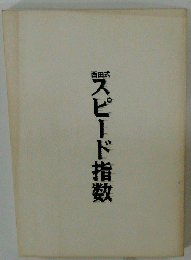 西田式
スピード指数